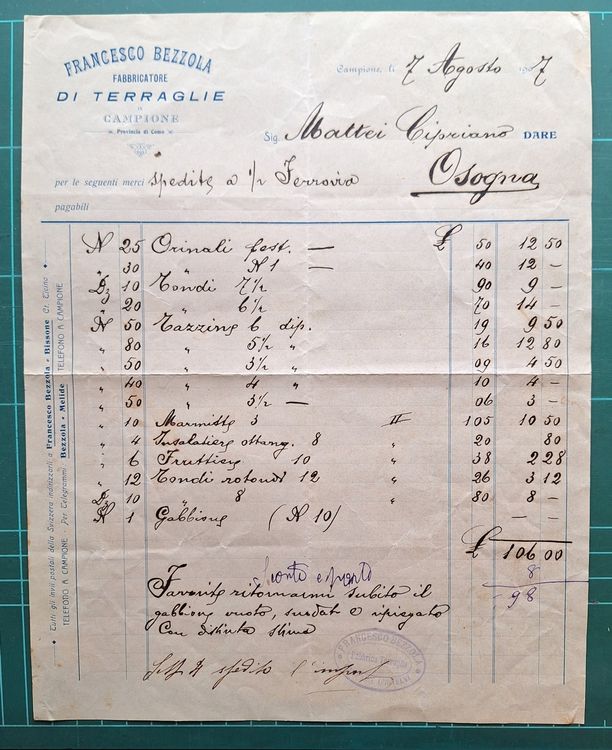 FRANCESCO BEZZOLA
FABBRICATORE
DI TERRAGLIE
IN
CAMPIONE
Provincia di Como
Campione, li 7 Agosto 1907
Sig. Mattei Cipriano DARE
per le seguenti merci spedite a 1/2 Ferrovia Osogna
pagabili
N 25 Orinali fest. — £ 50 12 50
" 30 " N 1 — 40 12 —
Dz 10 Tondi 7 1/2 90 9 —
" 20 " 6 1/2 70 14 —
N 50 Tazzine 6 dip. 19 9 50
" 80 " 5 1/2 " 16 12 80
" 50 " 3 1/2 " 09 4 50
" 40 " 4 " 10 4 —
" 50 " 3 1/2 — 06 3 —
" 10 Marmitte 3 II 105 10 50
" 4 Insalatiere ottang. 8 " 20 80
" 6 Fruttiere 10 " 38 2 28
" 12 Tondi rotondi 12 " 26 3 12
Dz 10 " 8 " 80 8 —
N 1 Gabbione (N 10) — —
£ 106 00
Sconto 8
98
Favorite ritornarmi subito il
gabbione vuoto, e
Con distinta stima
spedito l'import
FRANCESCO BEZZOLA
Tutti gli invii postali della Svizzera indirizzarli a Francesco Bezzola - Bissone Ct. Ticino
TELEFONO A CAMPIONE - Per Telegrammi: Bezzola - Melide TELEFONO A CAMPIONE